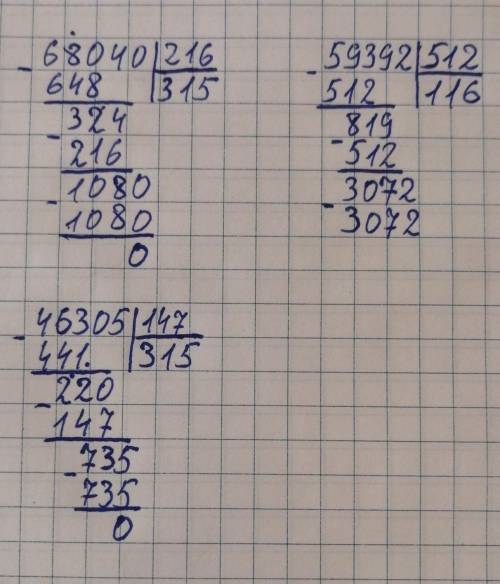 - 68040 | 216
648 | 315
- 324
216
- 1080
1080
0
- 59392 | 512
512 | 116
- 819
512
- 3072
3072
- 46305 | 147
441 | 315
- 220
147
- 735
735
0